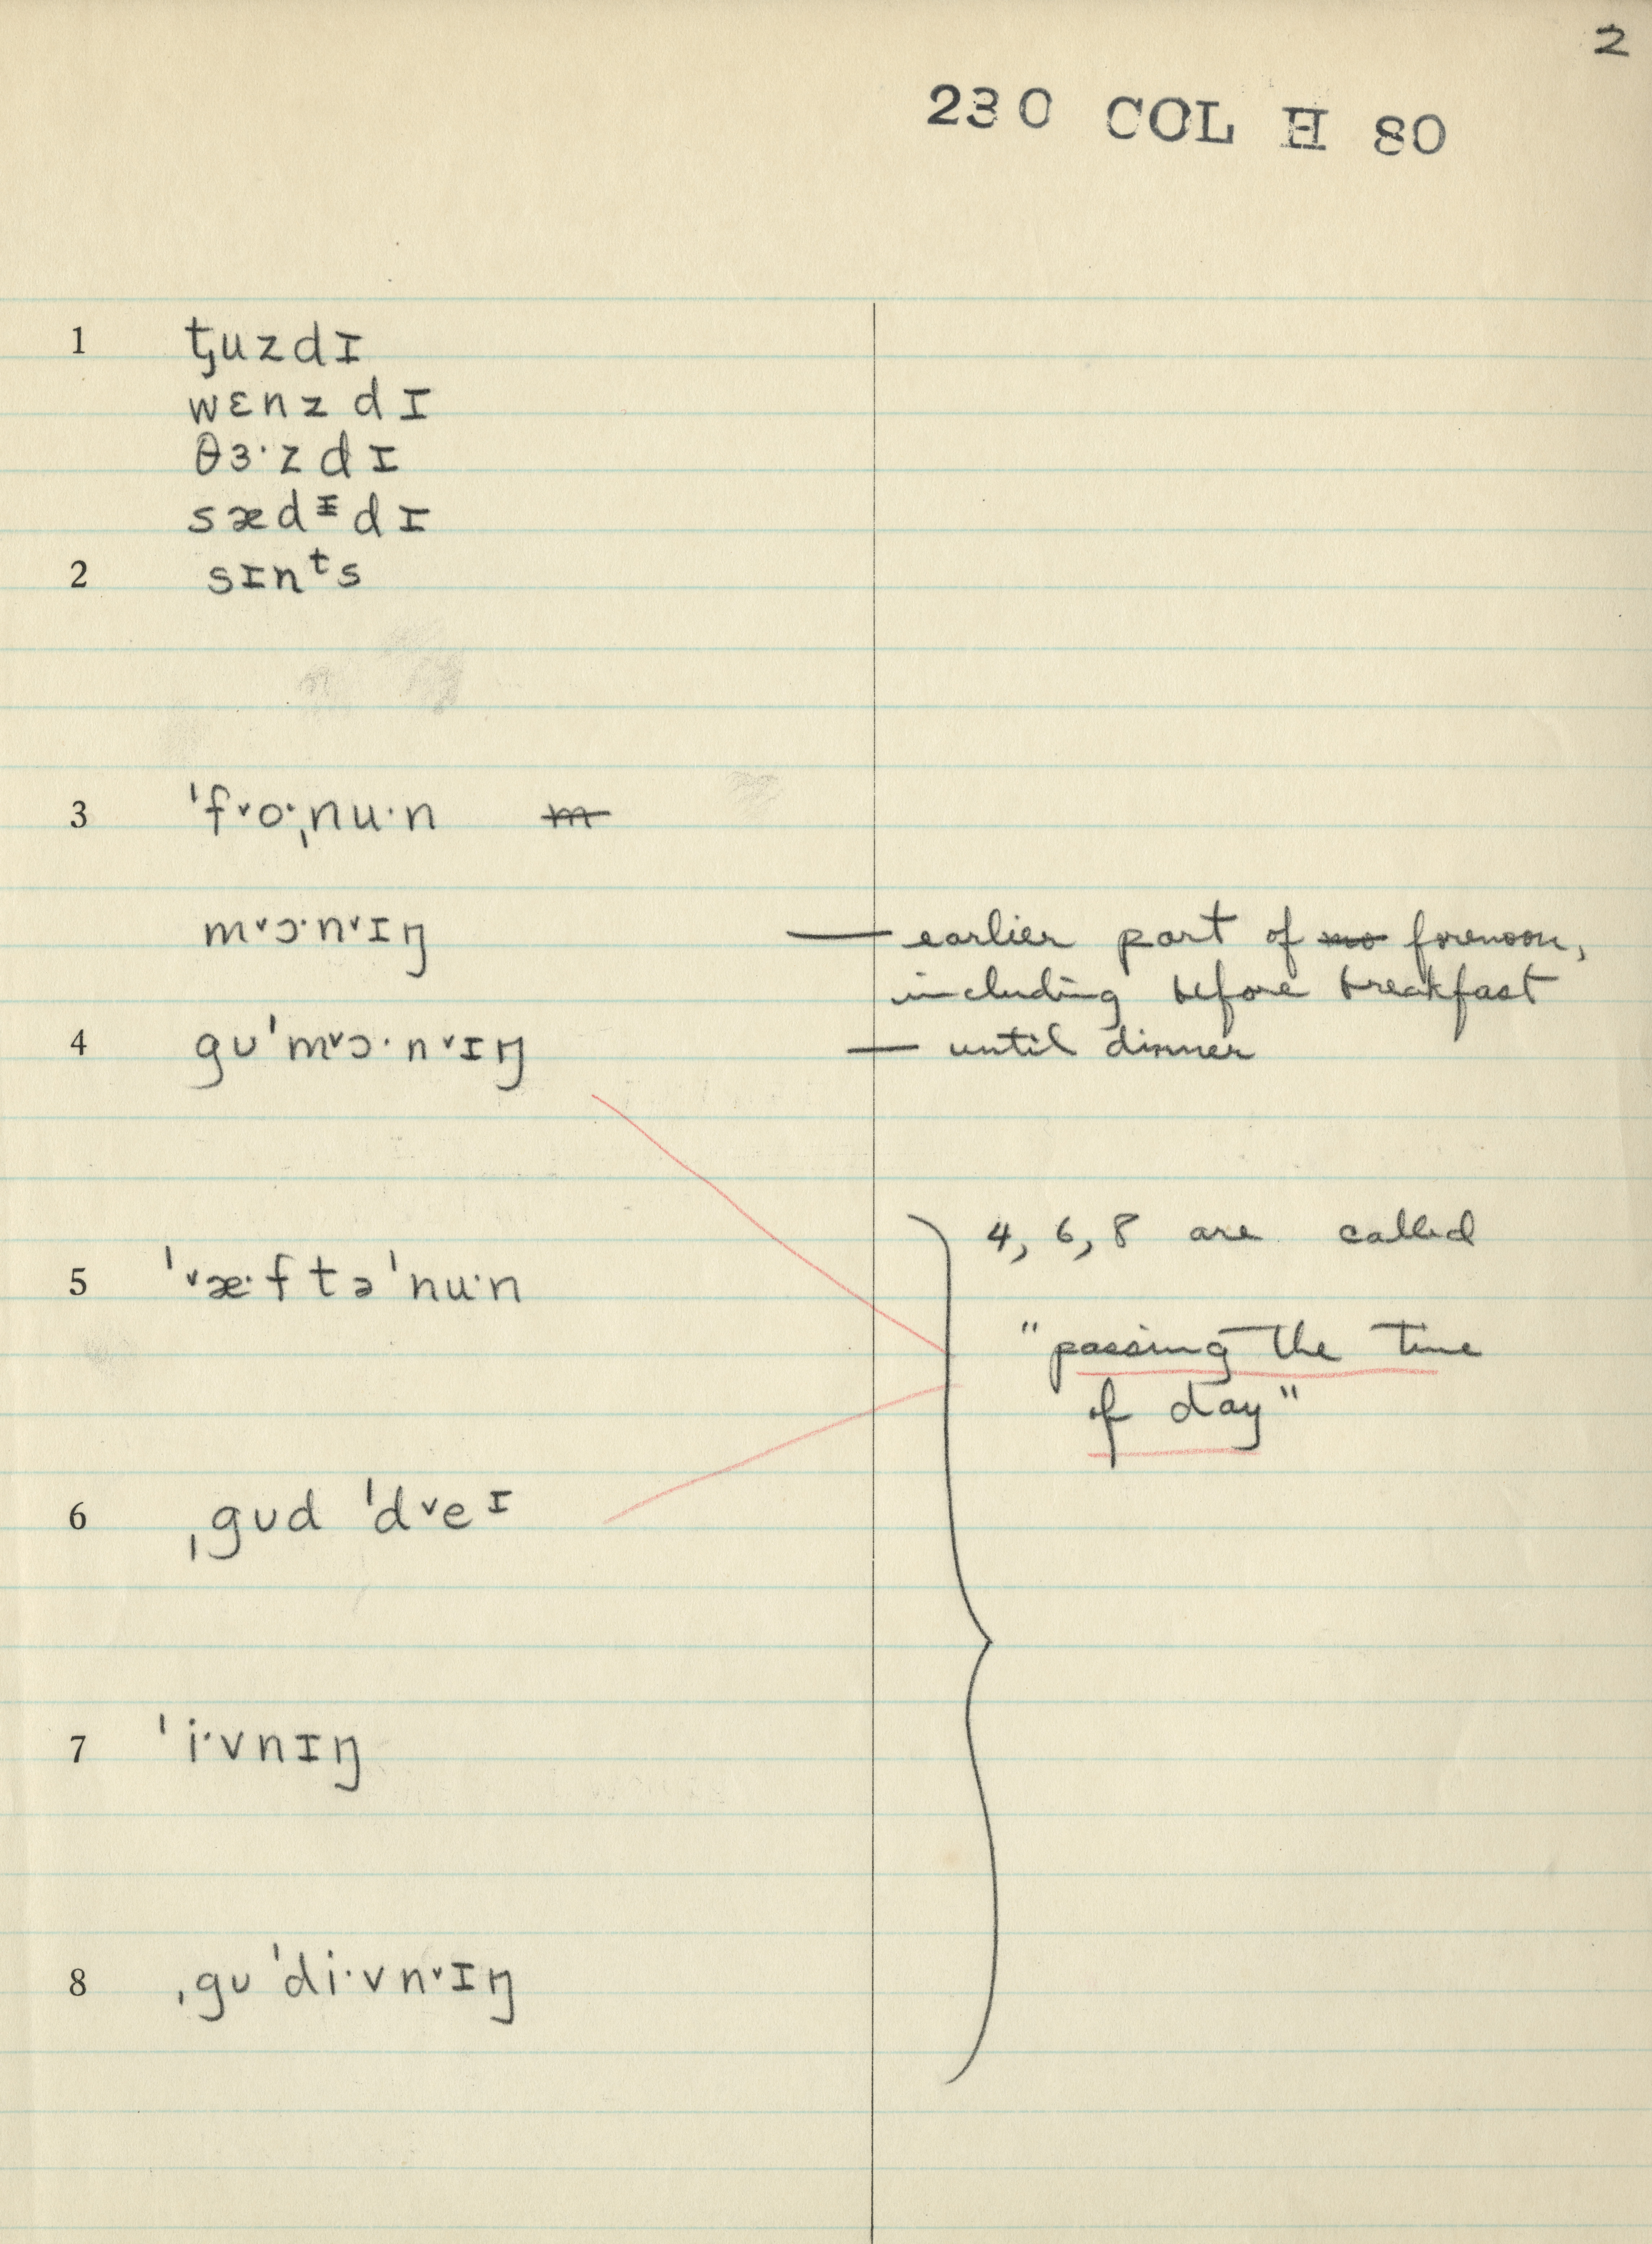 2
230 COL H 80
1 t̡uzdɪ
wɛnzdɪ
θɜ·zdɪ
sædᵻdɪ
2 sɪnᵗs
3 ˈf˅o·ˌnu·n m
m˅ɔ·n˅ɪŋ — earlier part of mo forenoon,
including before breakfast
4 gʊˈm˅ɔ·n˅ɪŋ — until dinner
4, 6, 8 are called
5 ˈ˅æ·ftəˈnu·n
"passing the time
of day"
6 ˌgʊd ˈd˅eᶦ
7 ˈi·vnɪŋ
8 ˌgʊˈdi·vn˅ɪŋ